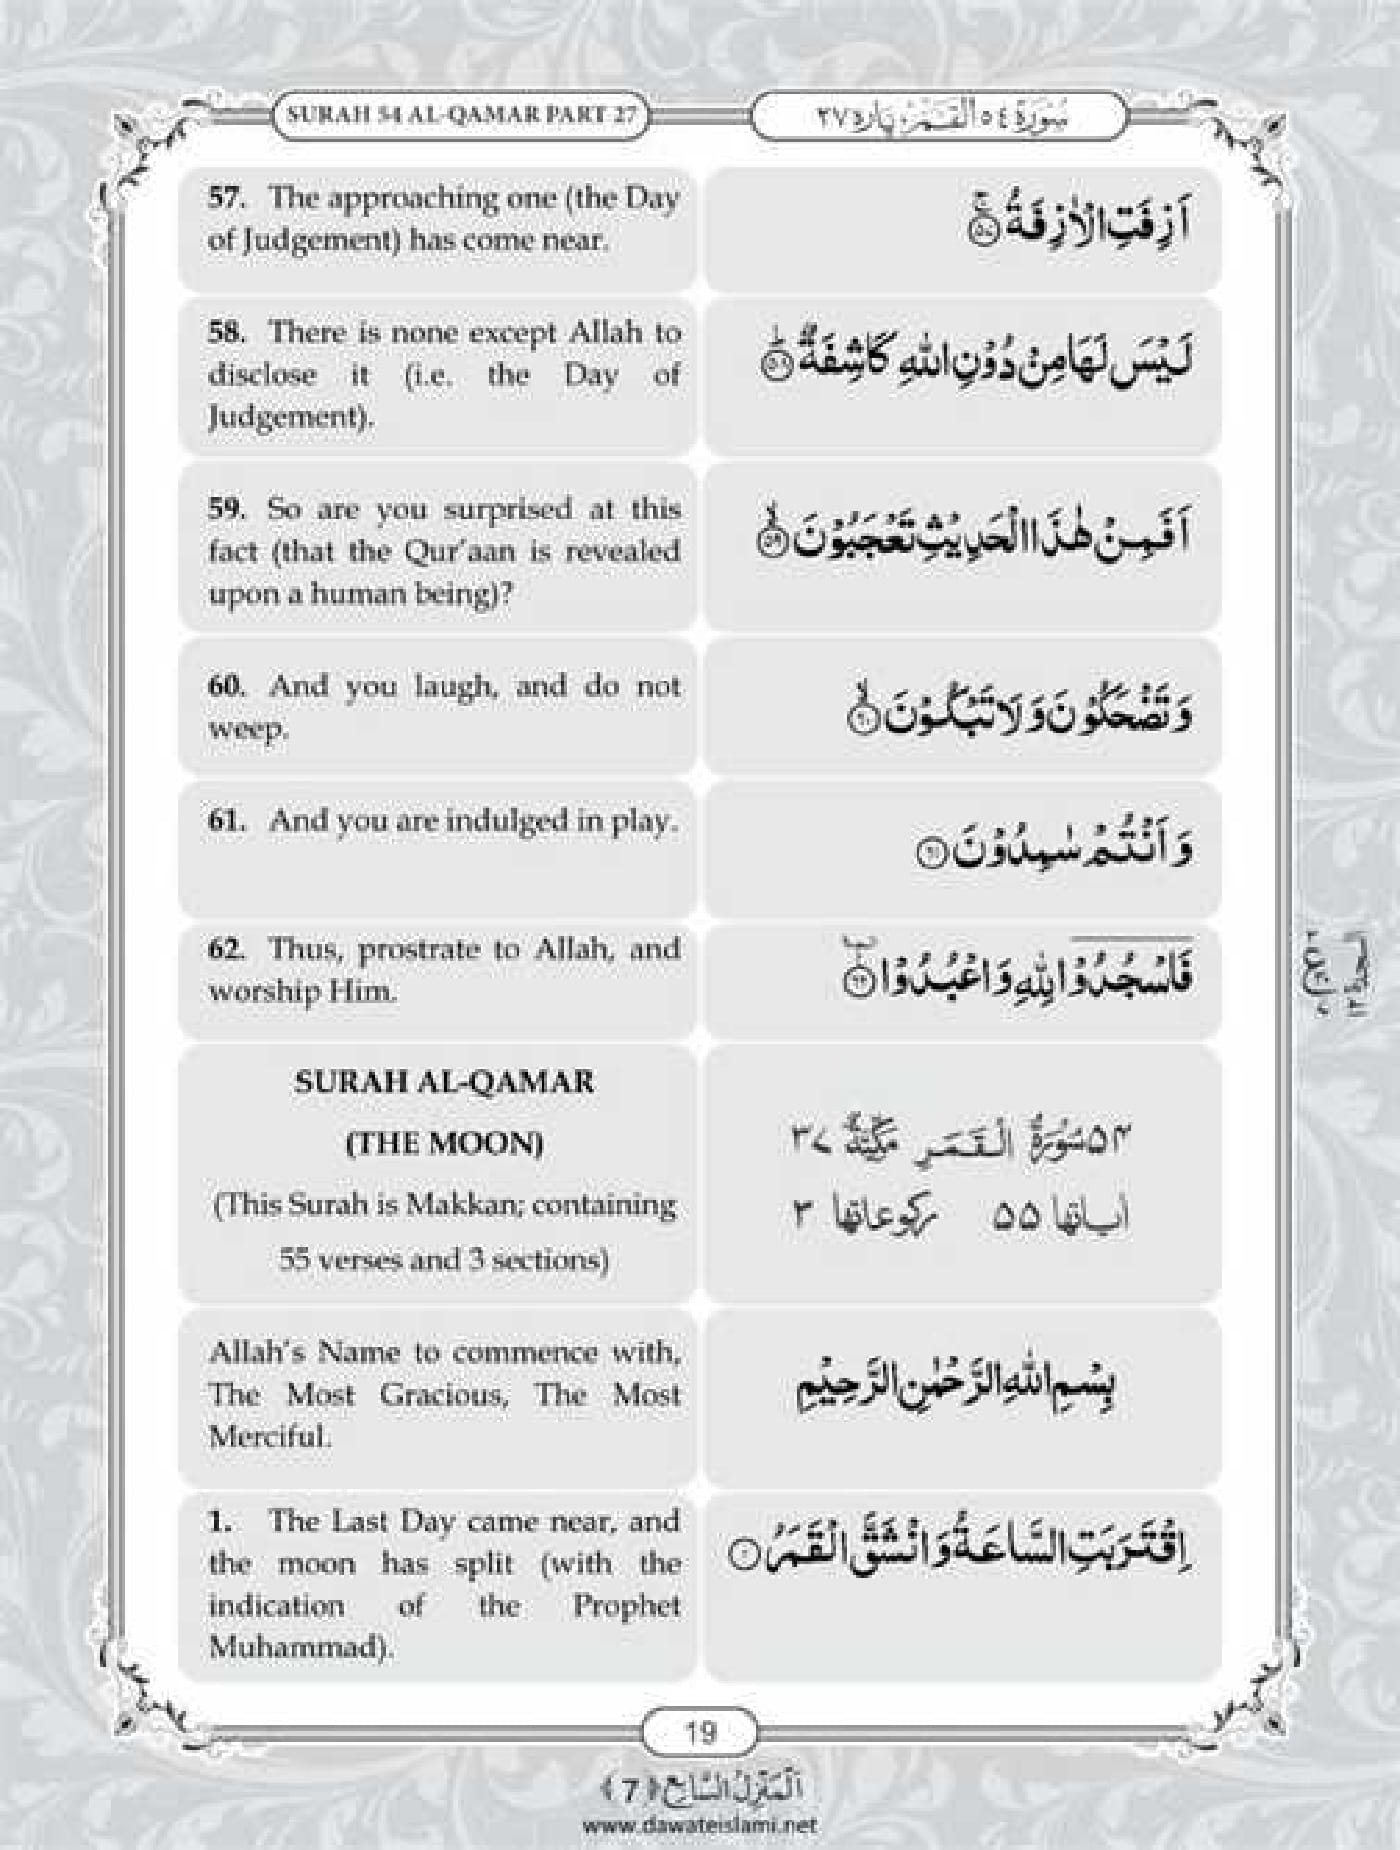 SURAH 54 AL-QAMAR PART 27
سُوْرَة ٥٤ القَمَر پاره ٢٧
57. The approaching one (the Day
of Judgement) has come near.
اَزِفَتِ الْاٰزِفَةُ ﴿۵۷﴾
58. There is none except Allah to
disclose it (i.e. the Day of
Judgement).
لَیْسَ لَهَا مِنْ دُوْنِ اللّٰهِ كَاشِفَةٌ ﴿۵۸﴾
59. So are you surprised at this
fact (that the Qur'aan is revealed
upon a human being)?
اَفَمِنْ هٰذَا الْحَدِیْثِ تَعْجَبُوْنَ ﴿۵۹﴾
60. And you laugh, and do not
weep.
وَ تَضْحَكُوْنَ وَ لَا تَبْكُوْنَ ﴿۶۰﴾
61. And you are indulged in play.
وَ اَنْتُمْ سٰمِدُوْنَ ﴿۶۱﴾
62. Thus, prostrate to Allah, and
worship Him.
فَاسْجُدُوْا لِلّٰهِ وَ اعْبُدُوْا ﴿۶۲﴾
السجدة ١٢
SURAH AL-QAMAR
(THE MOON)
(This Surah is Makkan; containing
55 verses and 3 sections)
۵۴ سُوْرَةُ الْقَمَرِ مَكِّیَّةٌ ۳۷
اٰیاتها ۵۵ ركوعاتها ۳
Allah's Name to commence with,
The Most Gracious, The Most
Merciful.
بِسْمِ اللّٰهِ الرَّحْمٰنِ الرَّحِیْمِ
1. The Last Day came near, and
the moon has split (with the
indication of the Prophet
Muhammad).
اِقْتَرَبَتِ السَّاعَةُ وَ انْشَقَّ الْقَمَرُ ﴿۱﴾
19
اَلْمَنْزِلُ السَّابِع ﴿7﴾
www.dawateislami.net